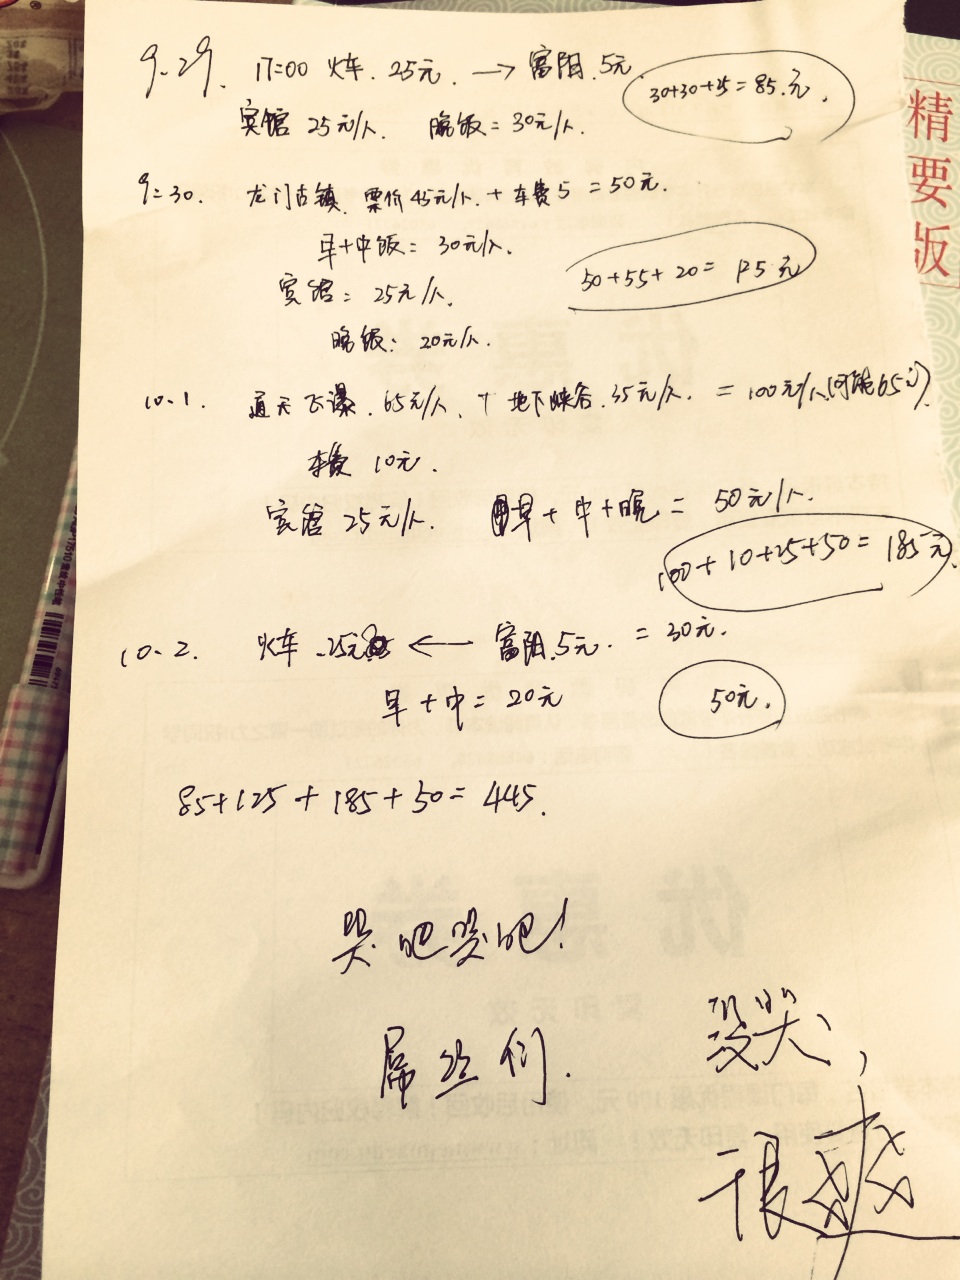 9.29. 17:00 火车.25元.→富阳.5元
30+30+25=85.元.
宾馆 25元/人. 晚饭=30元/人.
9.30. 龙门古镇.票价45元/人.+车费5=50元.
早+中饭=30元/人.
50+55+20=125元
宾馆=25元/人.
晚饭:20元/人.
10.1. 通天飞瀑.65元/人.+地下峡谷.35元/人.=100元/人(可能65元)
车费 10元.
宾馆 25元/人. 早+中+晚=50元/人.
100+10+25+50=185元.
10.2. 火车.25元←富阳.5元.=30元.
早+中=20元
50元.
85+125+185+50=445.
哭吧哭吧!
屌丝们.
没哭,
很爽
精要版